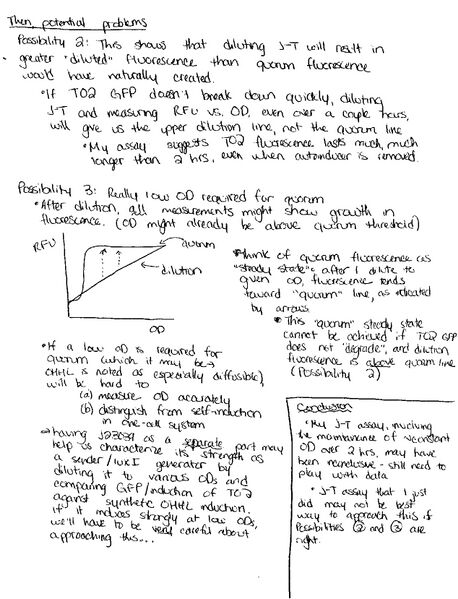 Then, potential problems
Possibility 2: This shows that diluting J-T will result in
greater "diluted" fluorescence than quorum fluorescence
would have naturally created.
• If T02 GFP doesn't break down quickly, diluting
J-T and measuring RFU vs. OD, even over a couple hours,
will give us the upper dilution line, not the quorum line
• My assay suggests T02 fluorescence lasts much, much
longer than 2 hrs, even when autoinducer is removed.
Possibility 3: Really low OD required for quorum
• After dilution, all measurements might show growth in
fluorescence. (OD might already be above quorum threshold)
RFU
quorum
dilution
OD
• Think of quorum fluorescence as
"steady state": after I dilute to
given OD, fluorescence tends
toward "quorum" line, as indicated
by arrows.
• This "quorum" steady state
cannot be achieved if T02 GFP
does not "degrade", and dilution
fluorescence is above quorum line
(Possibility 2)
• If a low OD is required for
quorum (which it may be →
OHHL is noted as especially diffusible)
will be hard to
(a) measure OD accurately
(b) distinguish from self-induction
in one-cell system
→ having J23039 as a separate part may
help us characterize its strength as
a sender/luxI generator by
diluting it to various ODs and
comparing GFP/induction of T02
against synthetic OHHL induction.
if it induces strongly at low ODs,
we'll have to be very careful about
approaching this...
Conclusion
• My J-T assay, involving
the maintenance of constant
OD over 2 hrs, may have
been inconclusive - still need to
play with data
• J-T assay that I just
did may not be best
way to approach this if
Possibilities ② and ③ are
right.